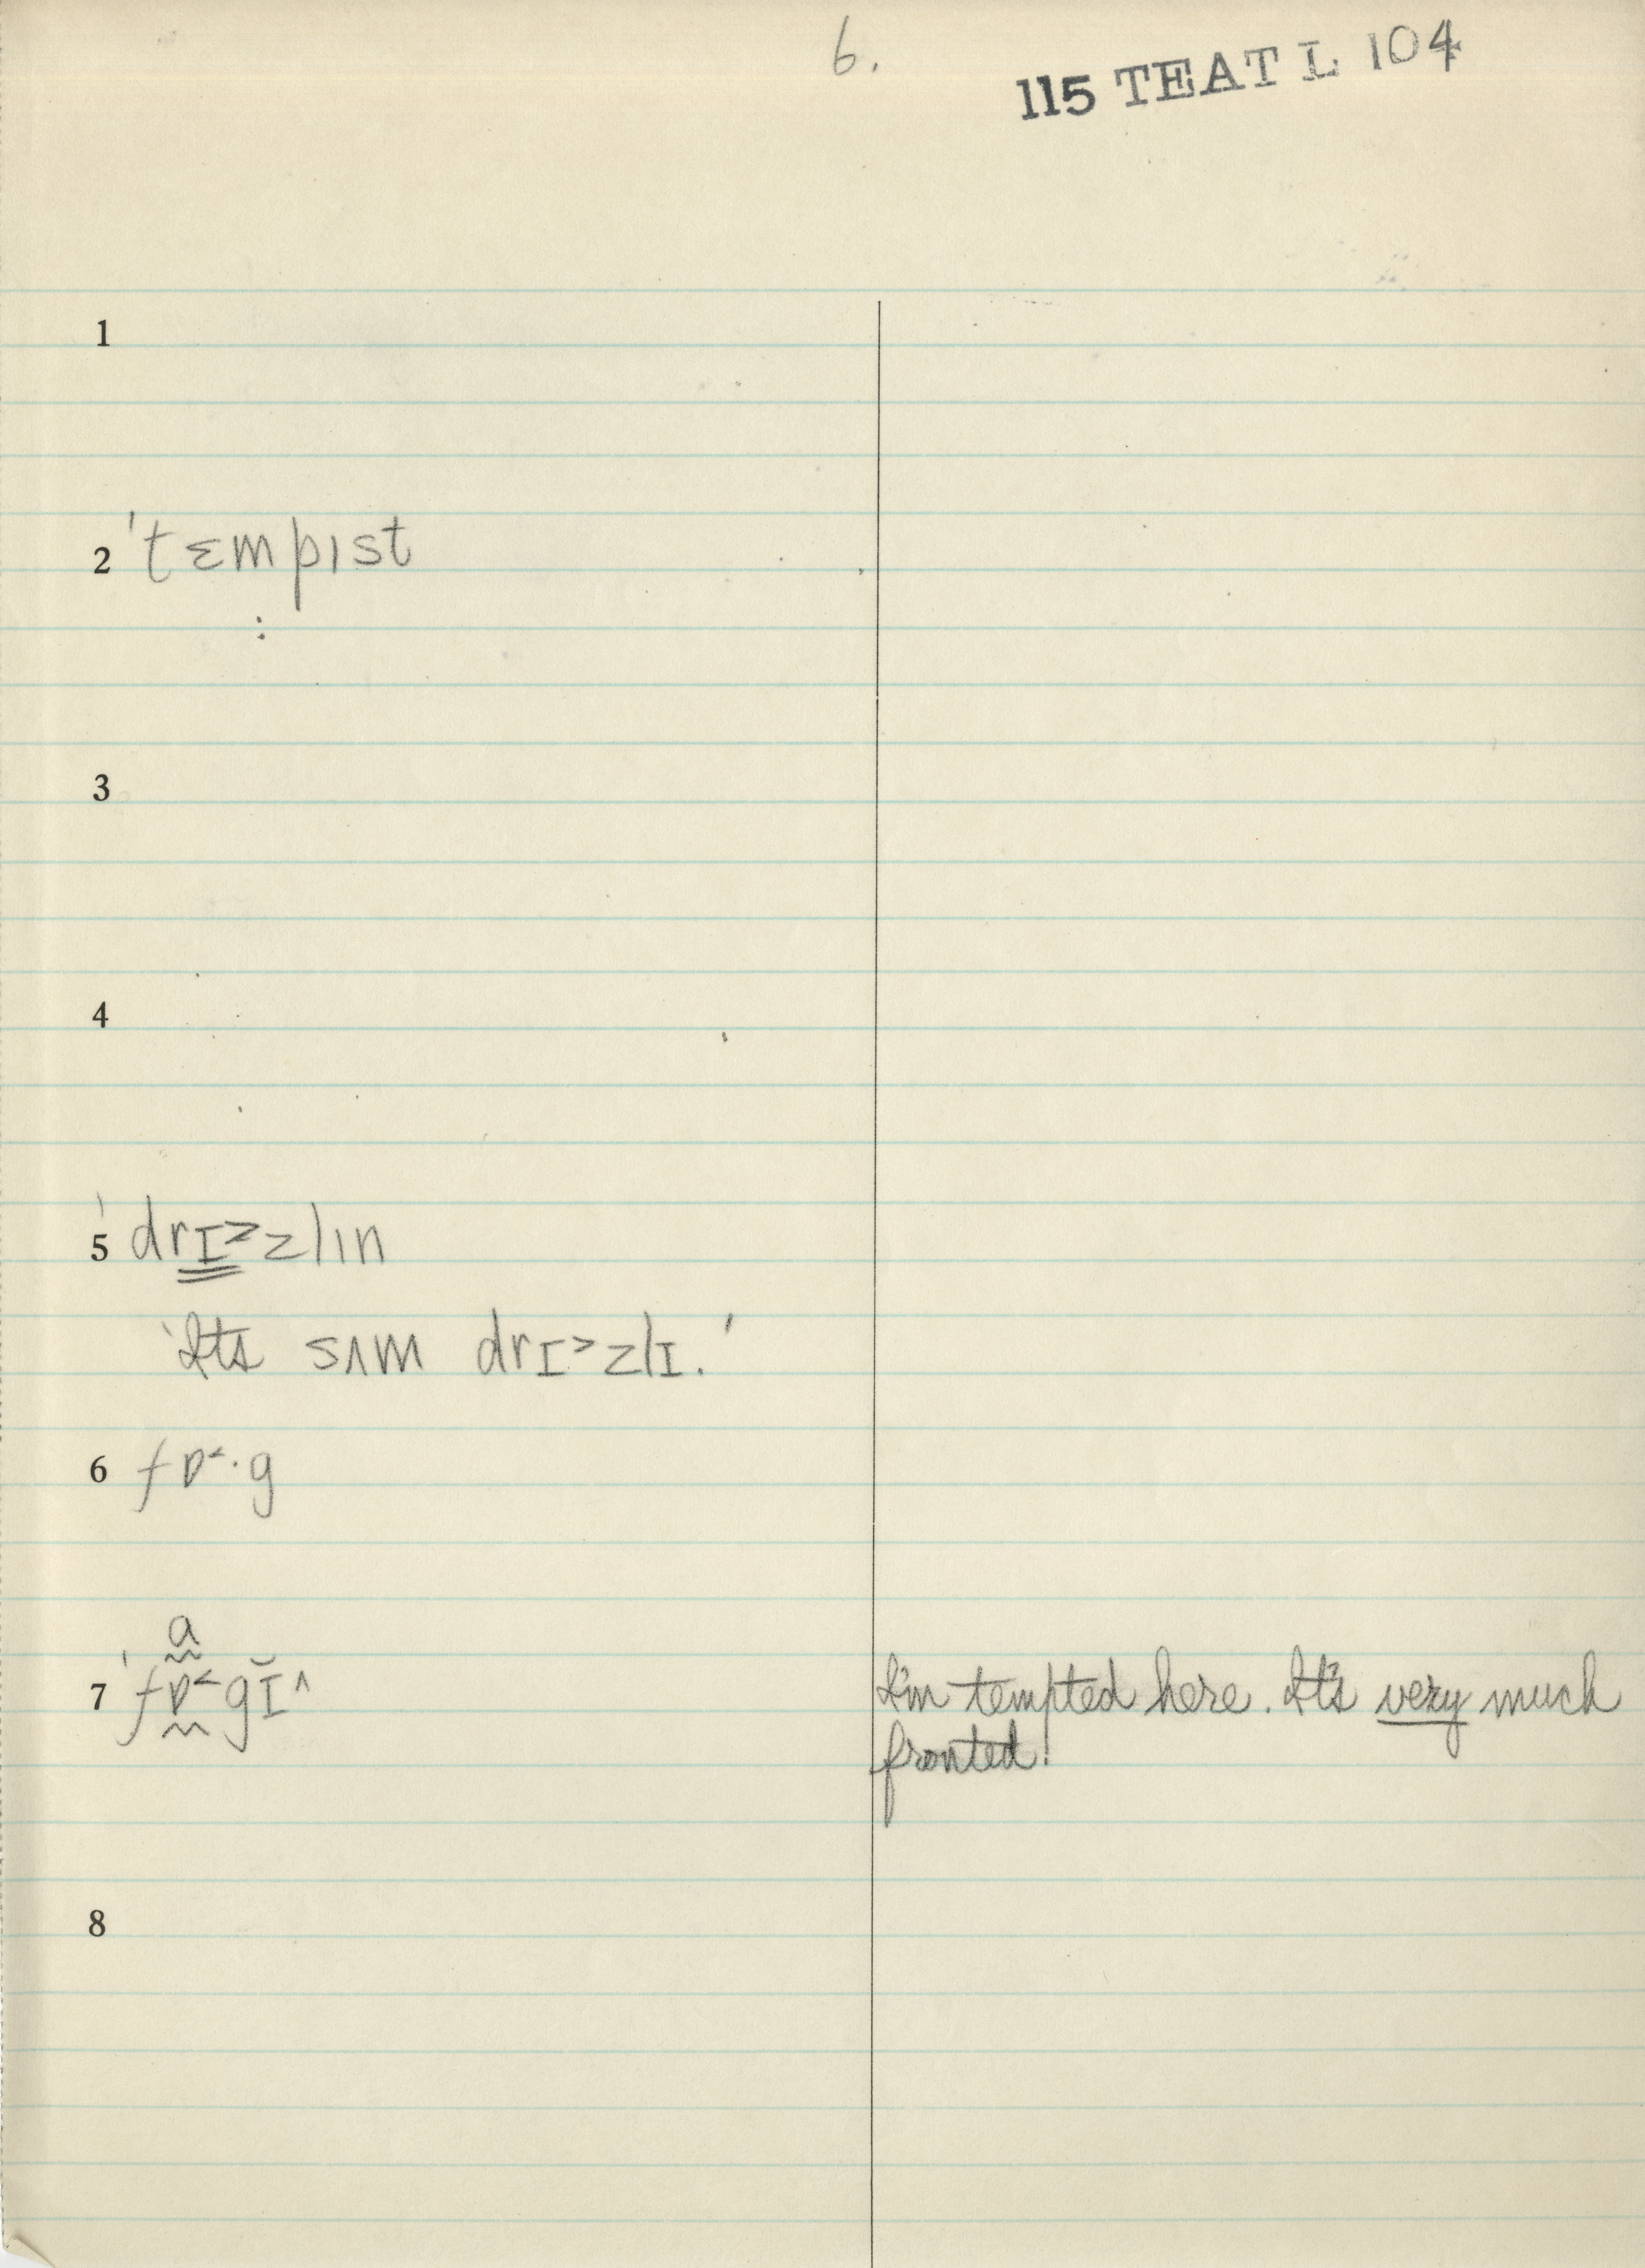 6.
115 TEAT L 104
1
2 'tɛmpɪst
:
3
4
5 'drɪ˃zlɪn
'Its sʌm drɪ˃zlɪ.'
6 fɒ˂·g
ɑ
7 'fɒ˂gɪ̆^ I'm tempted here. It's very much
fronted!
8